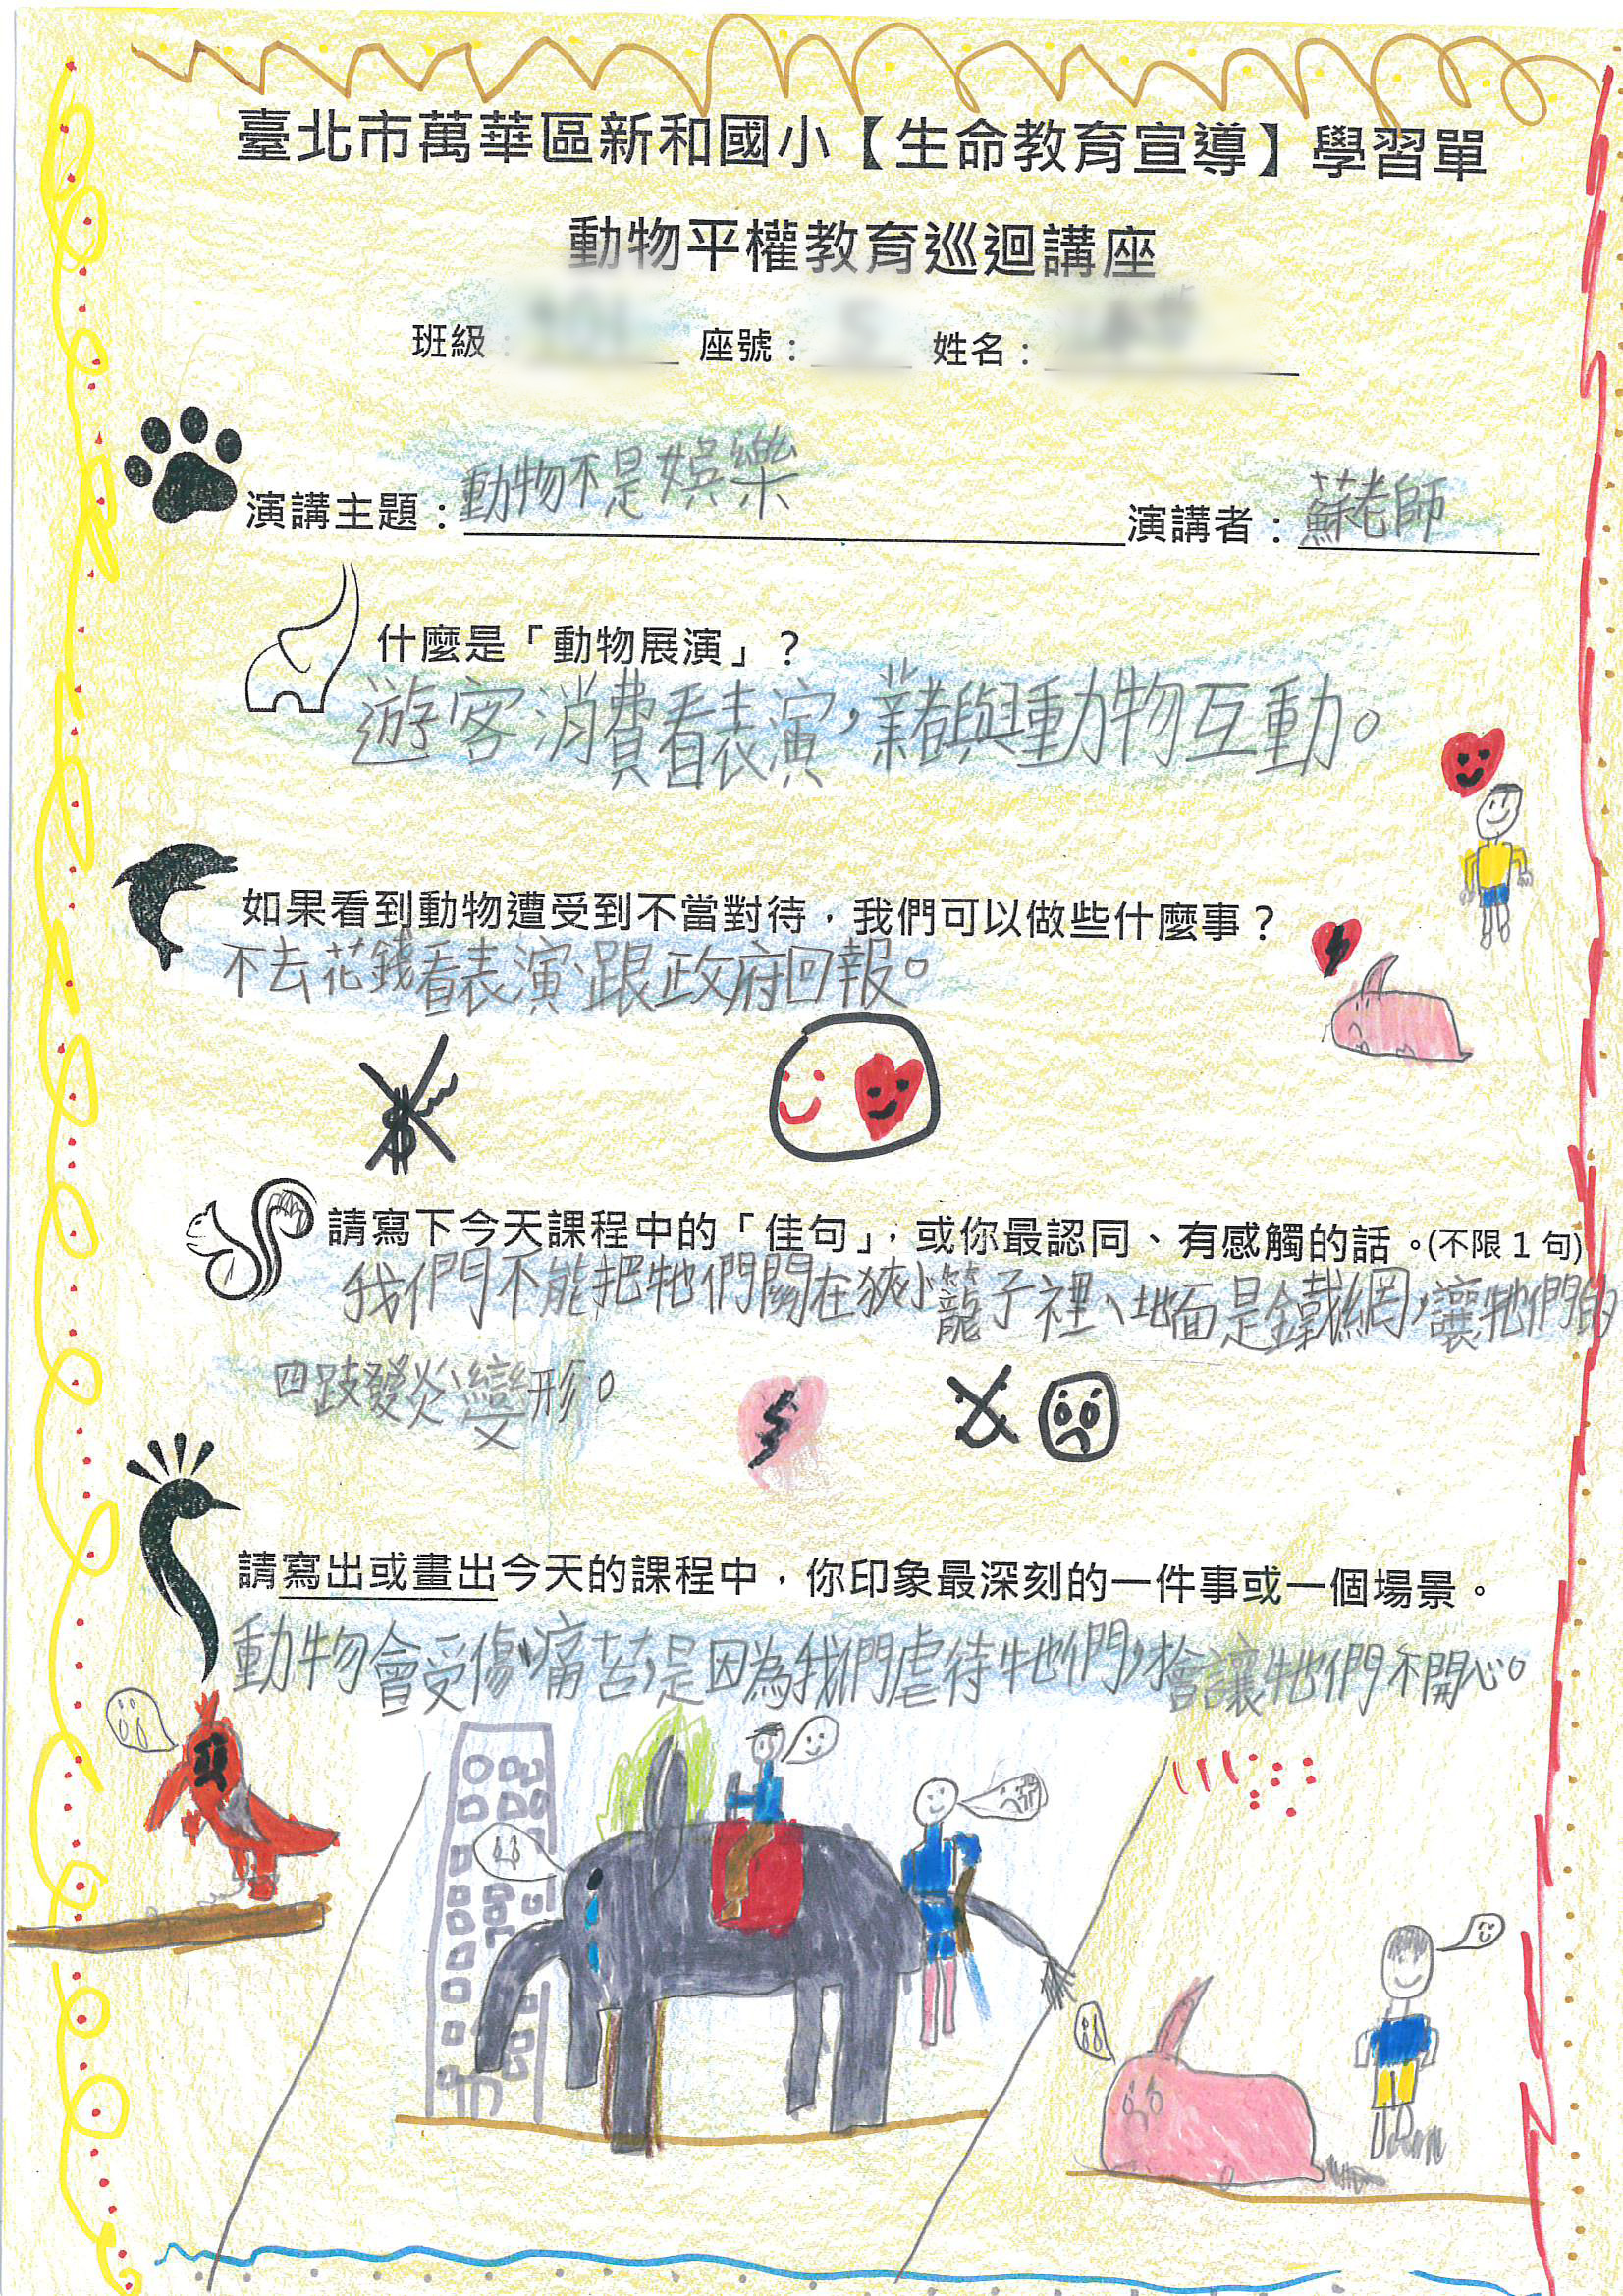 臺北市萬華區新和國小【生命教育宣導】學習單
動物平權教育巡迴講座
班級： 座號： 姓名：
演講主題：動物不是娛樂 演講者：蘇老師
什麼是「動物展演」？
遊客消費看表演，藉與動物互動。
如果看到動物遭受到不當對待，我們可以做些什麼事？
不去花錢看表演、跟政府回報。
請寫下今天課程中的「佳句」，或你最認同、有感觸的話。(不限1句)
我們不能把牠們關在狹小籠子裡、地面是鐵網，讓牠們的
四跂發炎、變形。
請寫出或畫出今天的課程中，你印象最深刻的一件事或一個場景。
動物會受傷、痛苦，是因為我們虐待牠們，才會讓牠們不開心。